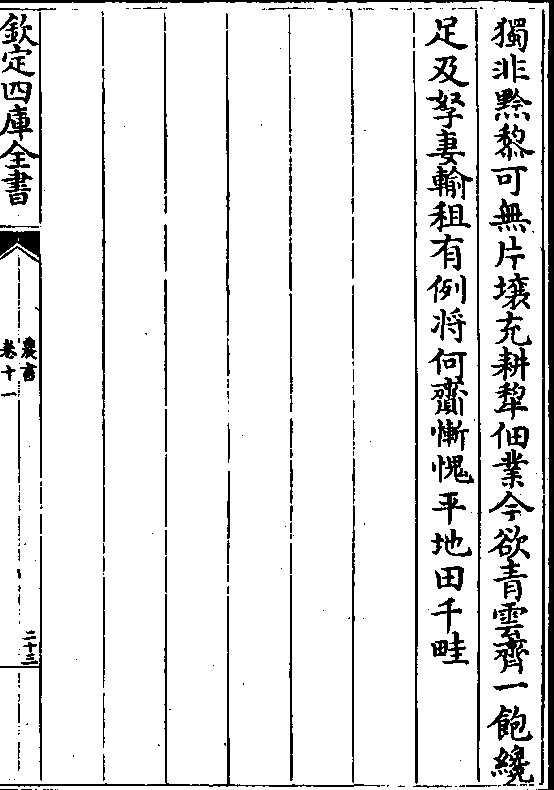 獨非黔黎可無片壤充耕犂佃業今欲青雲齊一飽纔
足及孥妻輸租有例將何齎慚愧平地田千畦
欽定四庫全書
農書
卷十一
二十三